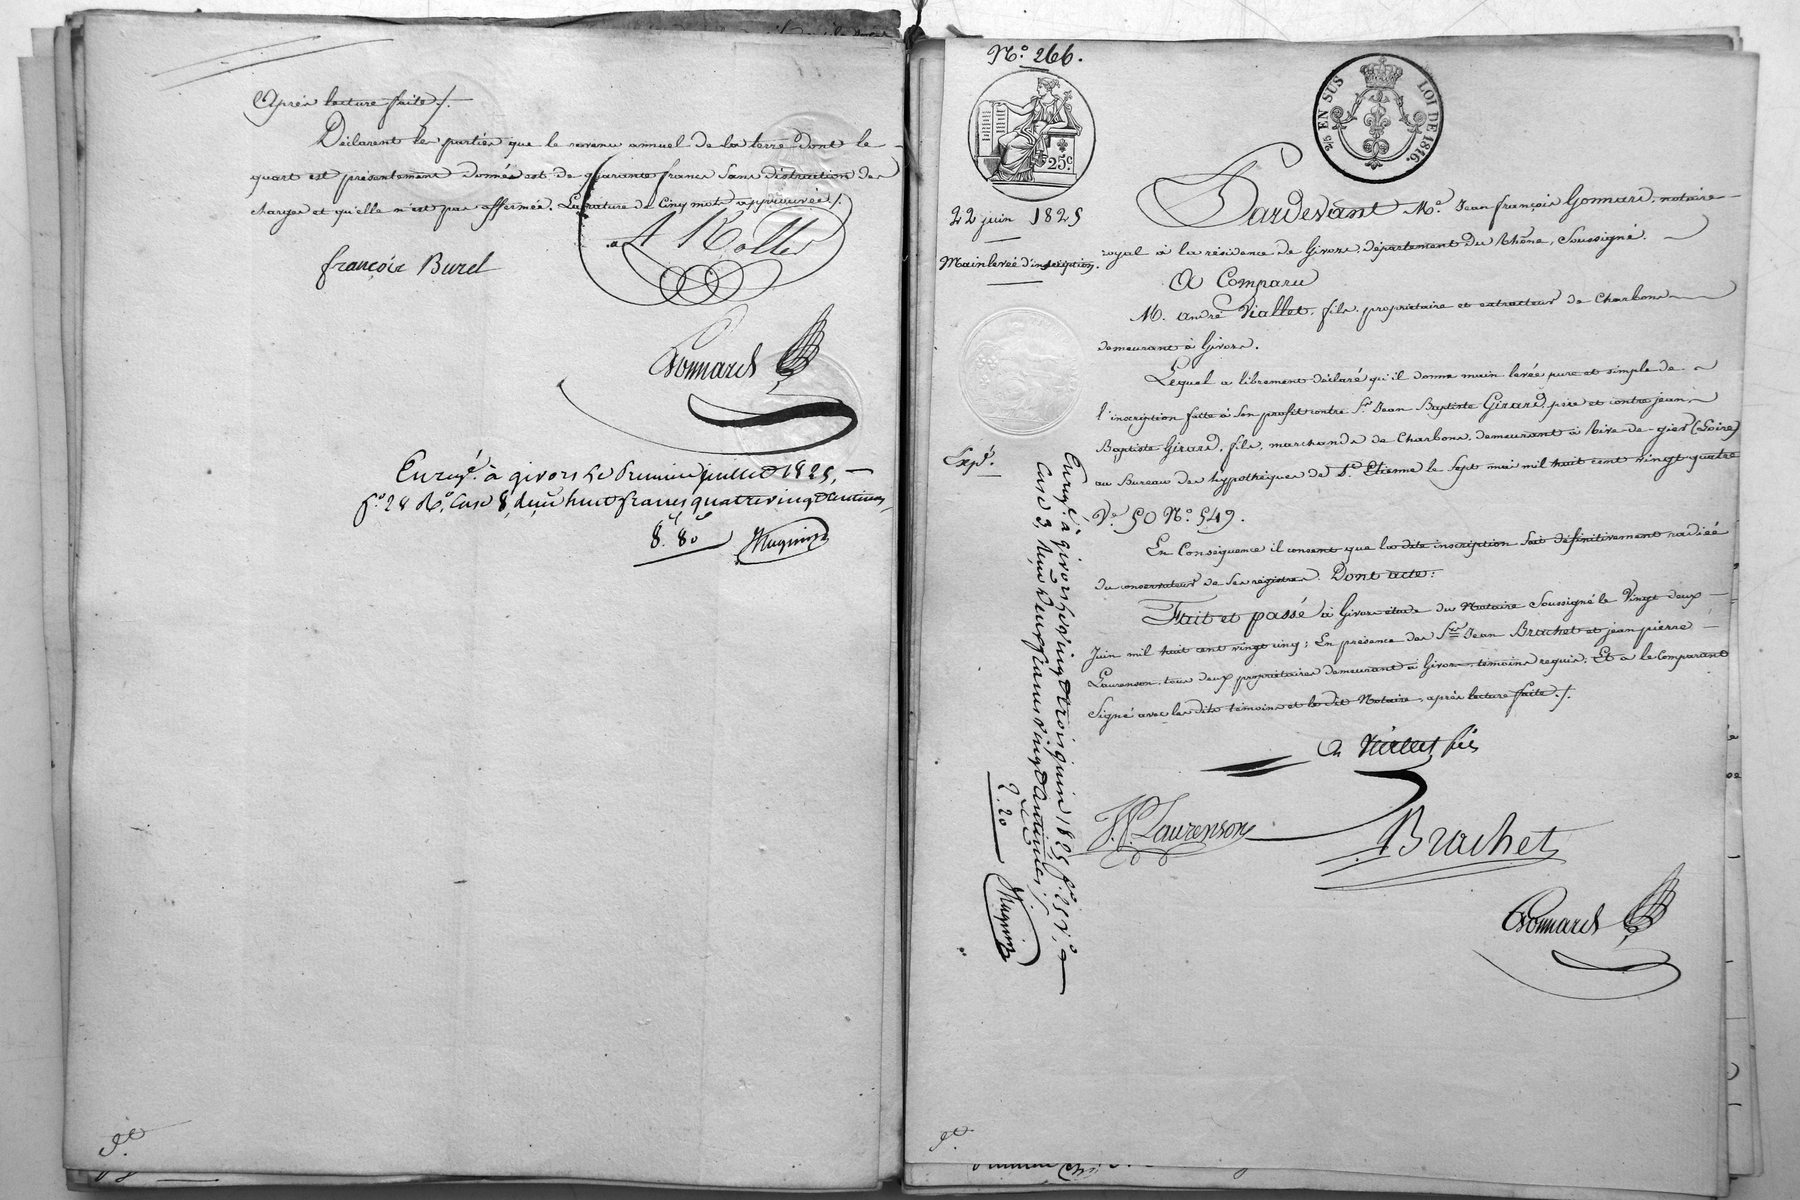 Après lecture faite ./.
Déclarent les parties que le revenu annuel de la terre dont le
quart est présentement donné est de quarante francs sans distraction des
charges et qu'elle n'est pas affermée. La rature de Cinq mots approuvée ./.
françois Burel
Gonnard
Enregé. à givors le Premier juillet 1825,
fo. 28 Ro. Case 8, reçu huit francs quatrevingt Centimes,
8f. 80c
No. 266.
25c.
2/10 EN SUS LOI DE 1816.
22 juin 1825
Mainlevée d'inscription.
Expé.
Pardevant Me. Jean françois Gonnard, notaire
royal à la résidence de Givors, département du Rhône, Soussigné.
A Comparu
M. andré Viallet, fils, propriétaire et extracteur de Charbons
demeurant à Givors.
Lequel a librement déclaré qu'il donne main levée pure et simple de
l'inscription faite à son profit contre Sr. Jean Baptiste Girard, père et contre jean
Baptiste Girard, fils, marchands de Charbons, demeurant à Rive-de-gier (Loire)
au Bureau des hypothèques de St. Etienne le Sept mai mil huit cent vingt quatre
Ve. 50 No. 549.
En Conséquence il consent que la dite inscription soit définitivement radiée
du conservateur de ses régistres. Dont acte:
Fait et passé à Givors étude du Notaire Soussigné le Vingt deux
Juin mil huit cent vingt cinq; En présence des Srs. Jean Brachet et jean pierre
Laurenson, tous deux propriétaires demeurant à Givors, témoins requis; Et a le Comparant
Signé avec les dits témoins et le dit Notaire, après lecture faite ./.
A Viallet fils
J. P. Laurenson
Brachet
Gonnard
Enregé. à givors le vingt trois juin 1825 fo. 25 Vo.
Case 3, reçu deux francs vingt Centimes ./.
2. 20